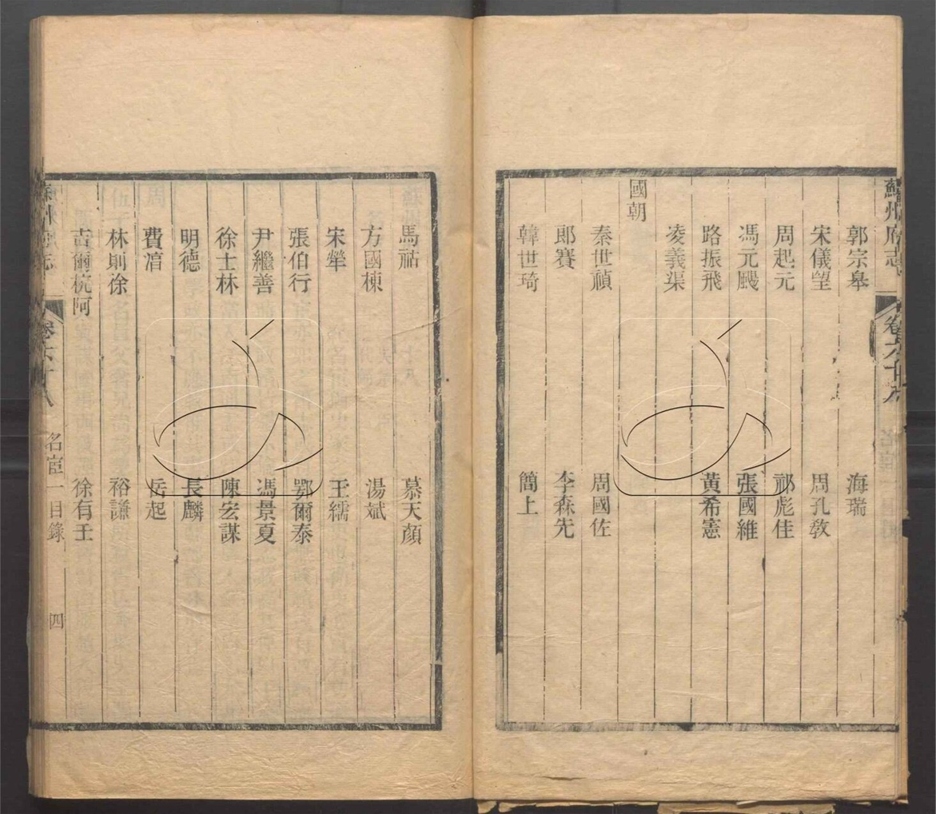 蘇州府志
卷六十八
郭宗皋 海瑞
宋儀望 周孔敎
周起元 祁彪佳
馮元飈 張國維
路振飛 黃希憲
凌義渠
國朝
秦世禎 周國佐
郎賽 李森先
韓世琦 簡上
馬祜 慕天顏
方國棟 湯斌
宋犖 王繻
張伯行 鄂爾泰
尹繼善 馮景夏
徐士林 陳宏謀
明德 長麟
費淳 岳起
林則徐 裕謙
吉爾杭阿 徐有壬
蘇州府志 卷六十八 名宦一目錄 四